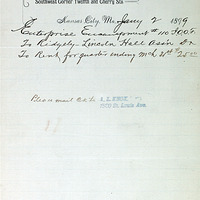 Southwest Corner Twelfth and Cherry Sts
Kansas City, Mo. Jany 2 1899
Enterprise Encampment # No I00F.
To Ridgely Lincoln Hall Assn Dr
To Rent for quarter ending Mch 31st $ 25.00
Please mail to
A. L. KNOX,
St. Louis Ave.